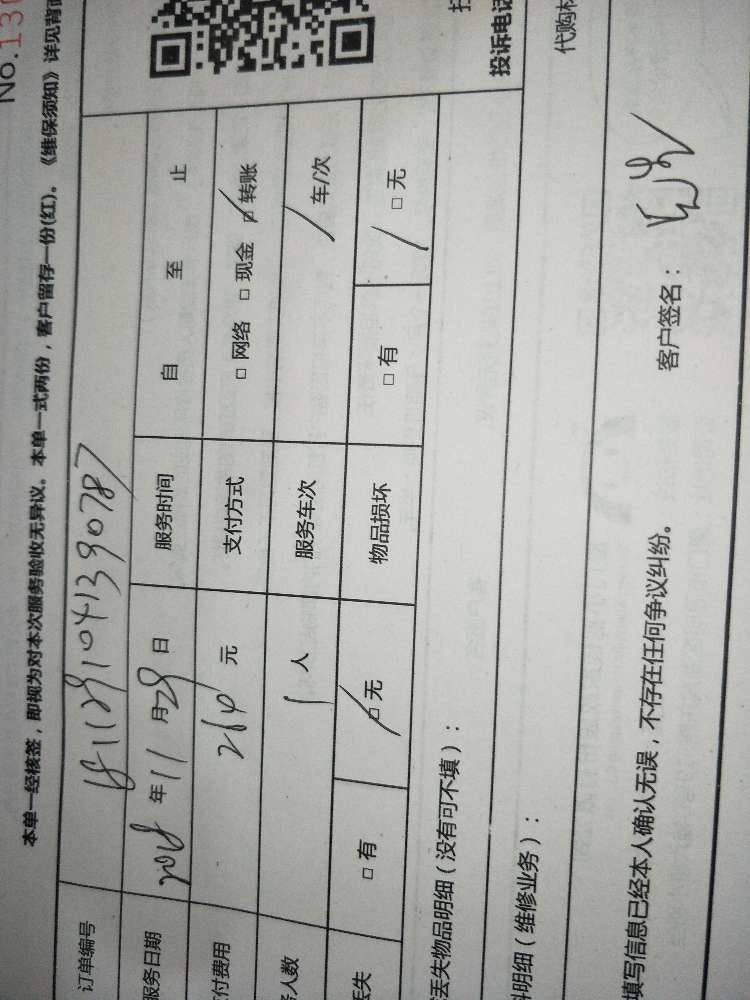 No.130
本单一经核签，即视为对本次服务验收无异议。本单一式两份，客户留存一份(红)。《维保须知》详见背面
投诉电话
订单编号 1811291041390787
服务日期 2018 年 11 月 29 日 服务时间 自 至 止
付费用 264 元 支付方式 □ 网络 □ 现金 □ 转账
务人数 1 人 服务车次 1 车/次
丢失 □ 有 □ 无 物品损坏 □ 有 □ 无
丢失物品明细（没有可不填）：
料明细（维修业务）： 代购材
填写信息已经本人确认无误，不存在任何争议纠纷。 客户签名：